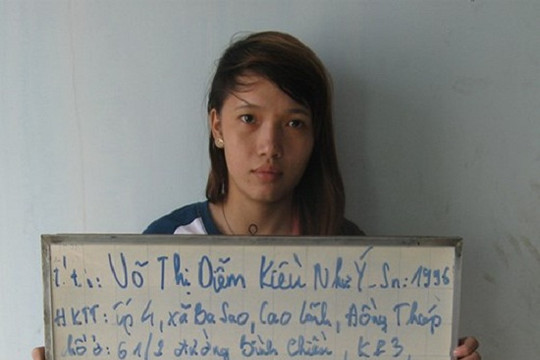 H.tên: Võ Thị Diễm Kiều Như Ý - Sn: 1996
HKTT: Ấp 4, xã Ba Sao, Cao Lãnh, Đồng Tháp
Chỗ ở: 61/2 đường Bình Chiểu, KP3,